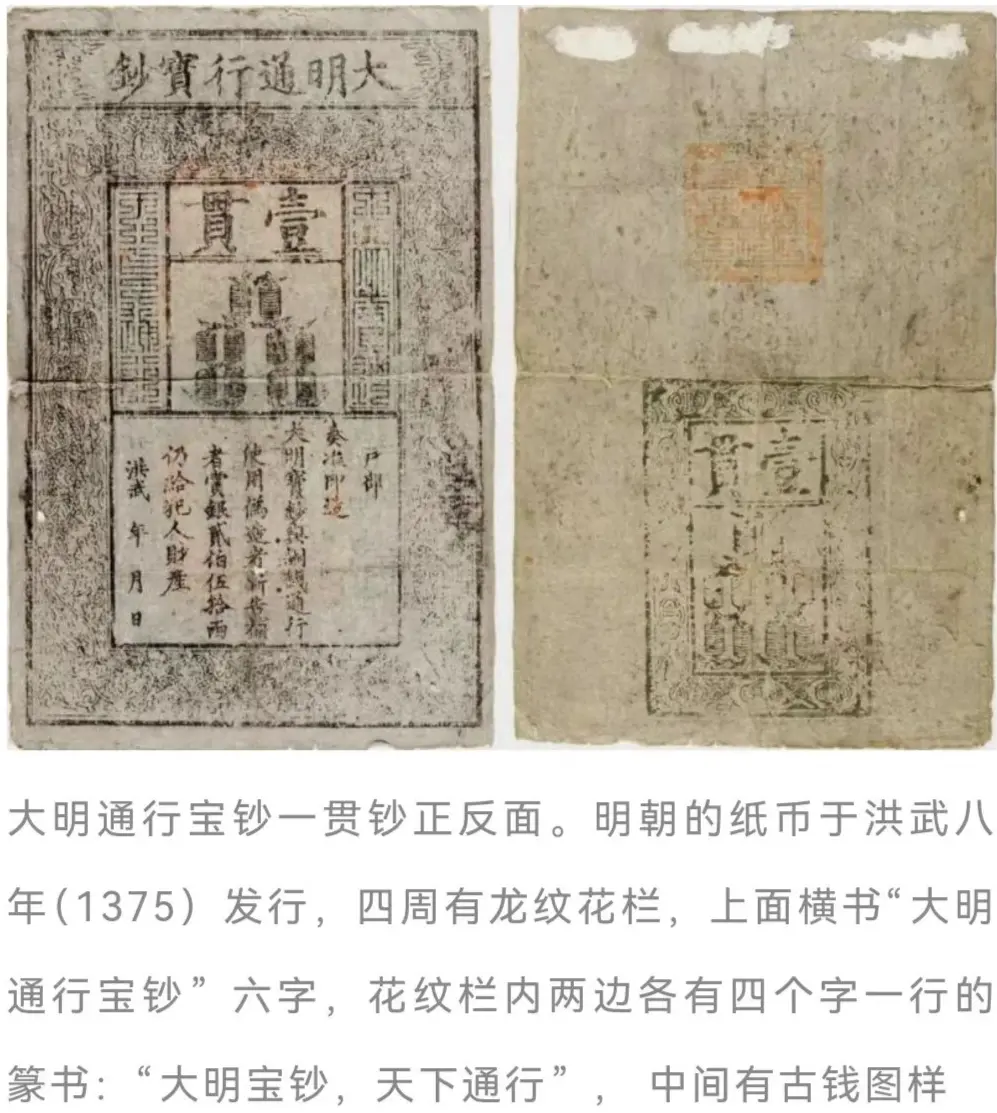 大明通行寶鈔
壹貫
戶部
奏准印造
大明寶鈔與銅錢通行
使用偽造者斬告捕
者賞銀貳伯伍拾兩
仍給犯人財產
洪武 年 月 日
壹貫
大明通行宝钞一贯钞正反面。明朝的纸币于洪武八
年(1375）发行，四周有龙纹花栏，上面横书“大明
通行宝钞”六字，花纹栏内两边各有四个字一行的
篆书:“大明宝钞，天下通行”，中间有古钱图样